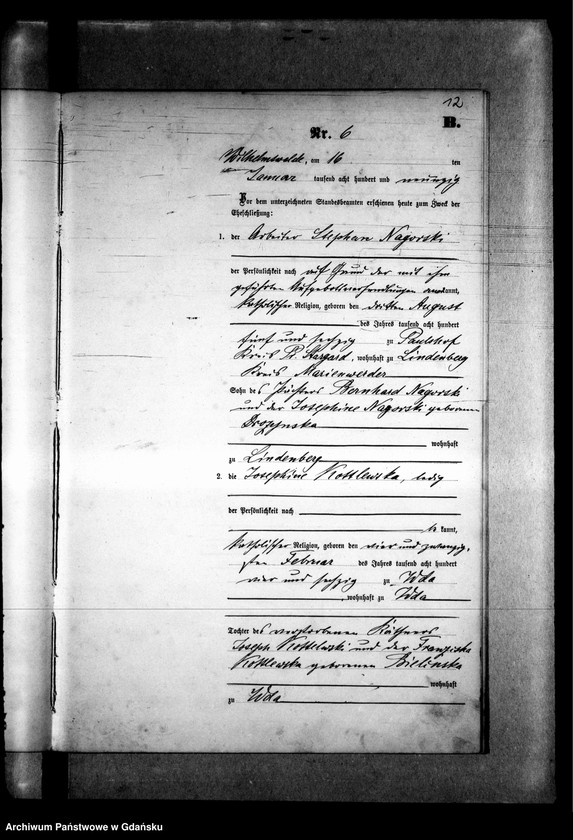 12
B.
Nr. 6
Wilhelmswalde, am 16 ten
Januar tausend acht hundert und neunzig
Vor dem unterzeichneten Standesbeamten erschienen heute zum Zweck der
Eheschließung:
1. der Arbeiter Stephan Nagorski
der Persönlichkeit nach auf Grund der mit ihm
geführten Aufgebotsverhandlungen anerkannt,
katholischer Religion, geboren den dritten August
des Jahres tausend acht hundert
fünf und sechzig zu Paulshof
Kreis Pr. Stargard, wohnhaft zu Lindenberg
Kreis Marienwerder
Sohn des Bernhard Nagorski
und der Josephine Nagorski geborenen
wohnhaft
zu Lindenberg
2. die Josephine Kottlewska, ledig
der Persönlichkeit nach
be kannt,
katholischer Religion, geboren den vier und zwanzig-
sten Februar des Jahres tausend acht hundert
vier und sechzig zu Wda
, wohnhaft zu Wda
Tochter des verstorbenen Käthners
Joseph Kottlewski und der Franziska
Kottlewska geborenen Bielinska
wohnhaft
zu Wda
Archiwum Państwowe w Gdańsku